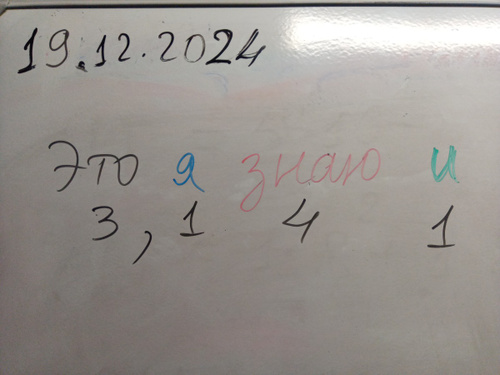 19.12.2024
Это я знаю и
3,1 4 1